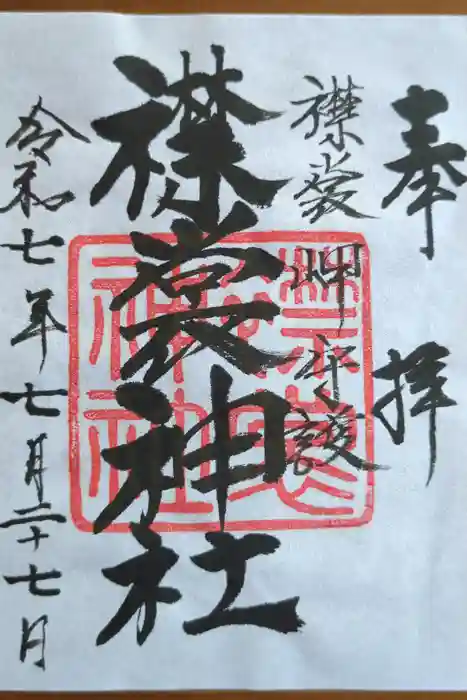 奉拝
襟裳岬守護
襟裳神社
令和七年七月二十七日
襟裳神社